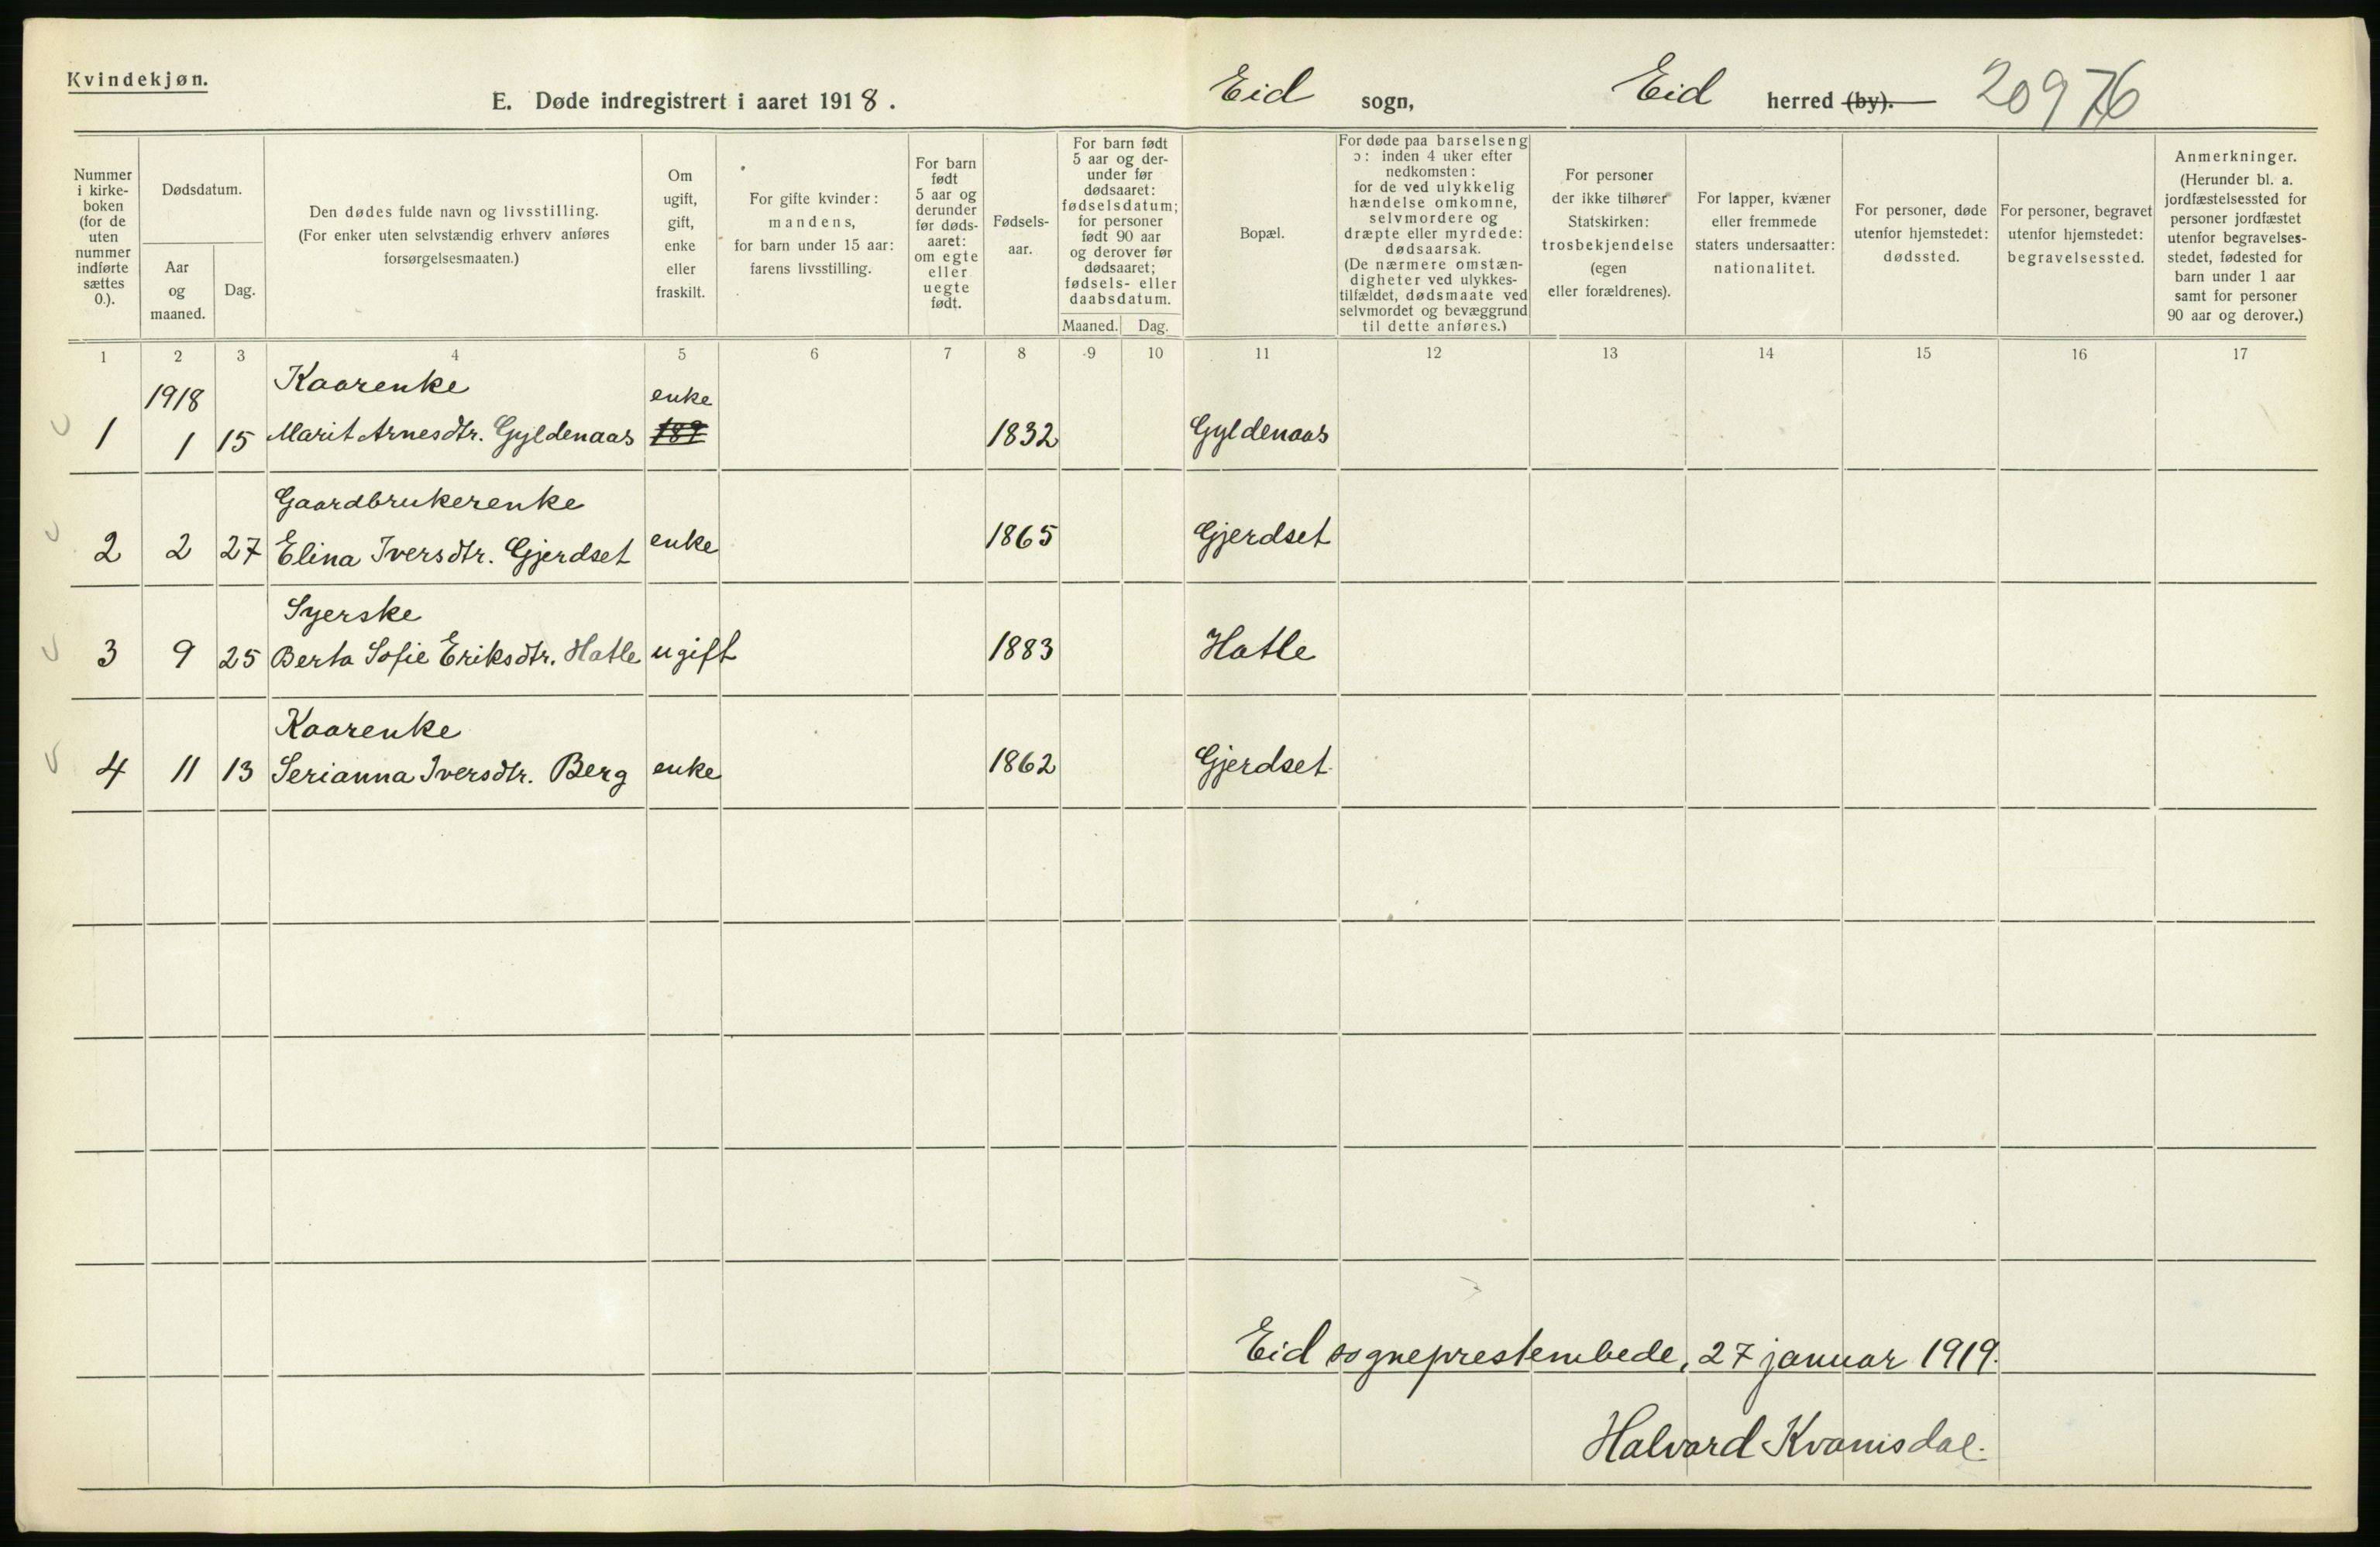 Kvindekjøn.
E. Døde indregistrert i aaret 1918.
Eid sogn, Eid herred (by).
20976
Nummer i kirkeboken (for de uten nummer indførte sættes 0.).
Dødsdatum.
Aar og maaned.
Dag.
Den dødes fulde navn og livsstilling.
(For enker uten selvstændig erhverv anføres
forsørgelsesmaaten.)
Om
ugift,
gift,
enke
eller
fraskilt.
For gifte kvinder:
mandens,
for barn under 15 aar:
farens livsstilling.
For barn
født
5 aar og
derunder
før døds-
aaret:
om egte
eller
uegte
født.
Fødsels-
aar.
For barn født
5 aar og der-
under før
dødsaaret:
fødselsdatum;
for personer
født 90 aar
og derover før
dødsaaret;
fødsels- eller
daabsdatum.
Maaned. Dag.
Bopæl.
For døde paa barselseng
ɔ: inden 4 uker efter
nedkomsten:
for de ved ulykkelig
hændelse omkomne,
selvmordere og
dræpte eller myrdede:
dødsaarsak.
(De nærmere omstæn-
digheter ved ulykkes-
tilfældet, dødsmaate ved
selvmordet og bevæggrund
til dette anføres.)
For personer
der ikke tilhører
Statskirken:
trosbekjendelse
(egen
eller forældrenes).
For lapper, kvæner
eller fremmede
staters undersaatter:
nationalitet.
For personer, døde
utenfor hjemstedet:
dødssted.
For personer, begravet
utenfor hjemstedet:
begravelsessted.
Anmerkninger.
(Herunder bl. a.
jordfæstelsessted for
personer jordfæstet
utenfor begravelses-
stedet, fødested for
barn under 1 aar
samt for personer
90 aar og derover.)
1 2 3 4 5 6 7 8 9 10 11 12 13 14 15 16 17
1918 Kaarenke enke
1 1 15 Marit Arnesdtr. Gyldenaas 1832 Gyldenaas
Gaardbrukerenke
2 2 27 Elina Iversdtr. Gjerdset enke 1865 Gjerdset
Syerske
3 9 25 Berta Sofie Eriksdtr. Hatle ugift 1883 Hatle
Kaarenke
4 11 13 Serianna Iversdtr. Berg enke 1862 Gjerdset.
Eid sogneprestembede, 27 januar 1919.
Halvard Kvamsdal.